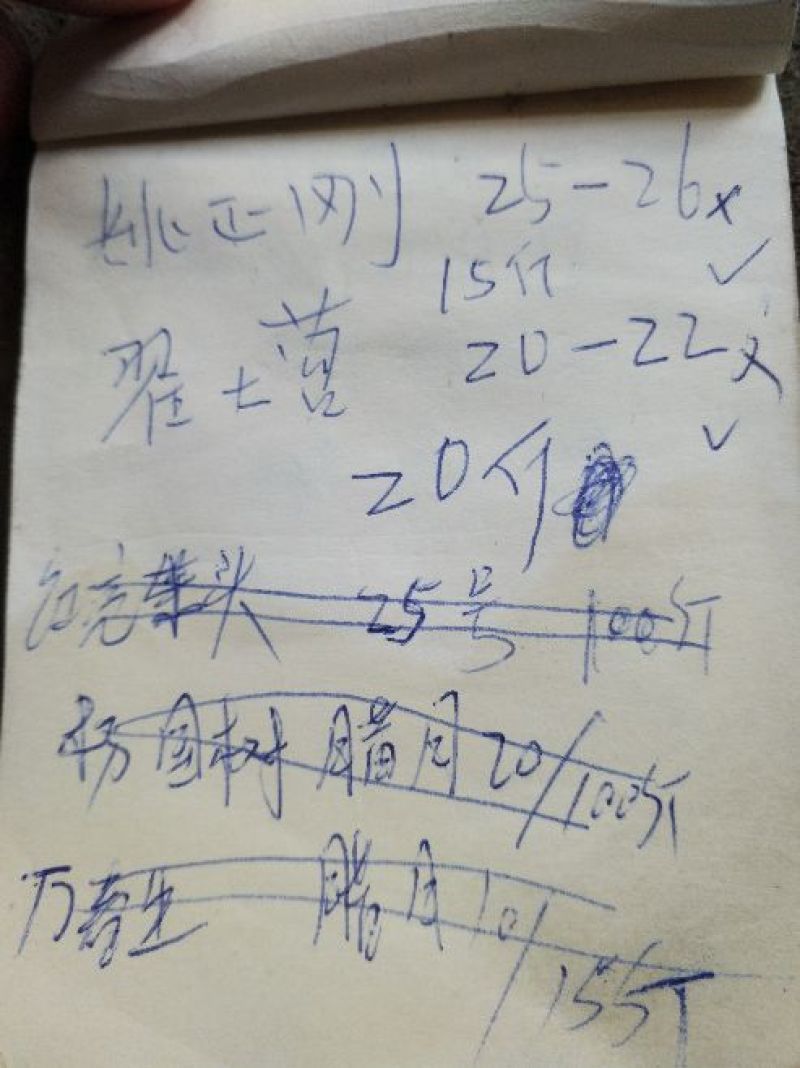 姚正刚 25-26x
15斤 ✓
翟士营 20-22x
✓
20斤
25号 100斤
杨国树 腊月20/100斤
万春生 腊月10/155斤